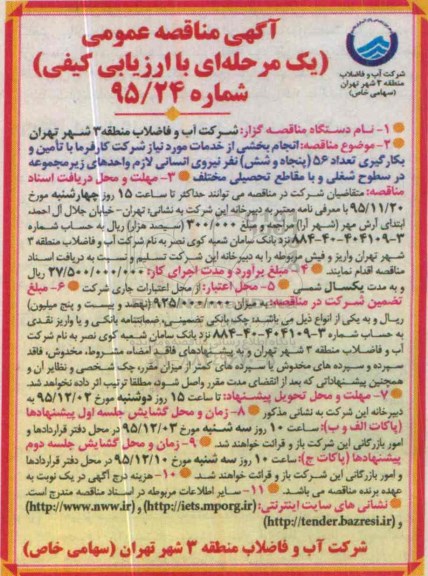 آگهی مناقصه عمومی
(یک مرحله‌ای با ارزیابی کیفی)
شماره ۹۵/۲۴
شرکت آب و فاضلاب
منطقه ۳ شهر تهران
(سهامی خاص)
۱- نام دستگاه مناقصه گزار: شرکت آب و فاضلاب منطقه ۳ شهر تهران
۲- موضوع مناقصه: انجام بخشی از خدمات مورد نیاز شرکت کارفرما با تأمین و
بکارگیری تعداد ۵۶ (پنجاه و شش) نفر نیروی انسانی لازم واحدهای زیرمجموعه
در سطوح شغلی و با مقاطع تحصیلی مختلف ۳- مهلت و محل دریافت اسناد
مناقصه: متقاضیان شرکت در مناقصه می توانند حداکثر تا ساعت ۱۵ روز چهارشنبه مورخ
۹۵/۱۱/۲۰ با معرفی نامه معتبر به دبیرخانه این شرکت به نشانی: تهران- خیابان جلال آل احمد،
ابتدای آرش مهر (شهر آرا) مراجعه و مبلغ ۳۰۰/۰۰۰ (سیصد هزار) ریال به حساب شماره
۸۸۴-۴۰-۴۰۴۱۰۹-۳ نزد بانک سامان شعبه کوی نصر به نام شرکت آب و فاضلاب منطقه ۳
شهر تهران واریز و فیش مربوطه را به دبیرخانه این شرکت تسلیم و نسبت به دریافت اسناد
مناقصه اقدام نمایند. ۴- مبلغ برآورد و مدت اجرای کار: ۲۷/۵۰۰/۰۰۰/۰۰۰ ریال
و به مدت یکسال شمسی ۵- محل اعتبار: از محل اعتبارات جاری شرکت ۶- مبلغ
تضمین شرکت در مناقصه: به میزان ۹۲۵/۰۰۰/۰۰۰ (نهصد و بیست و پنج میلیون)
ریال و به یکی از انواع ذیل می باشد: چک بانکی تضمینی، ضمانتنامه بانکی و یا واریز نقدی
به حساب شماره ۸۸۴-۴۰-۴۰۴۱۰۹-۳ نزد بانک سامان شعبه کوی نصر به نام شرکت
آب و فاضلاب منطقه ۳ شهر تهران و به پیشنهادهای فاقد امضاء، مشروط، مخدوش، فاقد
سپرده و سپرده های مخدوش یا سپرده های کمتر از میزان مقرر، چک شخصی و نظایر آن و
همچنین پیشنهاداتی که بعد از انقضای مدت مقرر واصل شود، مطلقا ترتیب اثر داده نخواهد شد.
۷- مهلت و محل تحویل پیشنهاد: تا ساعت ۱۵ روز دوشنبه مورخ ۹۵/۱۲/۰۲ به
دبیرخانه این شرکت به نشانی مذکور ۸- زمان و محل گشایش جلسه اول پیشنهادها
(پاکات الف و ب): ساعت ۱۰ روز سه شنبه مورخ ۹۵/۱۲/۰۳ در محل دفتر قراردادها و
امور بازرگانی این شرکت باز و قرائت خواهند شد. ۹- زمان و محل گشایش جلسه دوم
پیشنهادها (پاکات ج): ساعت ۱۰ روز سه شنبه مورخ ۹۵/۱۲/۱۰ در محل دفتر قراردادها
و امور بازرگانی این شرکت باز و قرائت خواهند شد. ۱۰- هزینه درج آگهی در یک نوبت به
عهده برنده مناقصه می باشد. ۱۱- سایر اطلاعات مربوطه در اسناد مناقصه مندرج است.
نشانی های سایت اینترنتی: (http://iets.mporg.ir) و (http://www.nww.ir)
و (http://tender.bazresi.ir)
شرکت آب و فاضلاب منطقه ۳ شهر تهران (سهامی خاص)